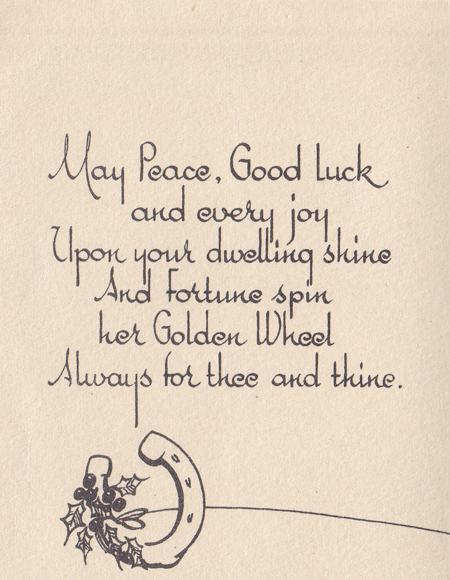 May Peace, Good luck
and every joy
Upon your dwelling shine
And Fortune spin
her Golden Wheel
Always for thee and thine.